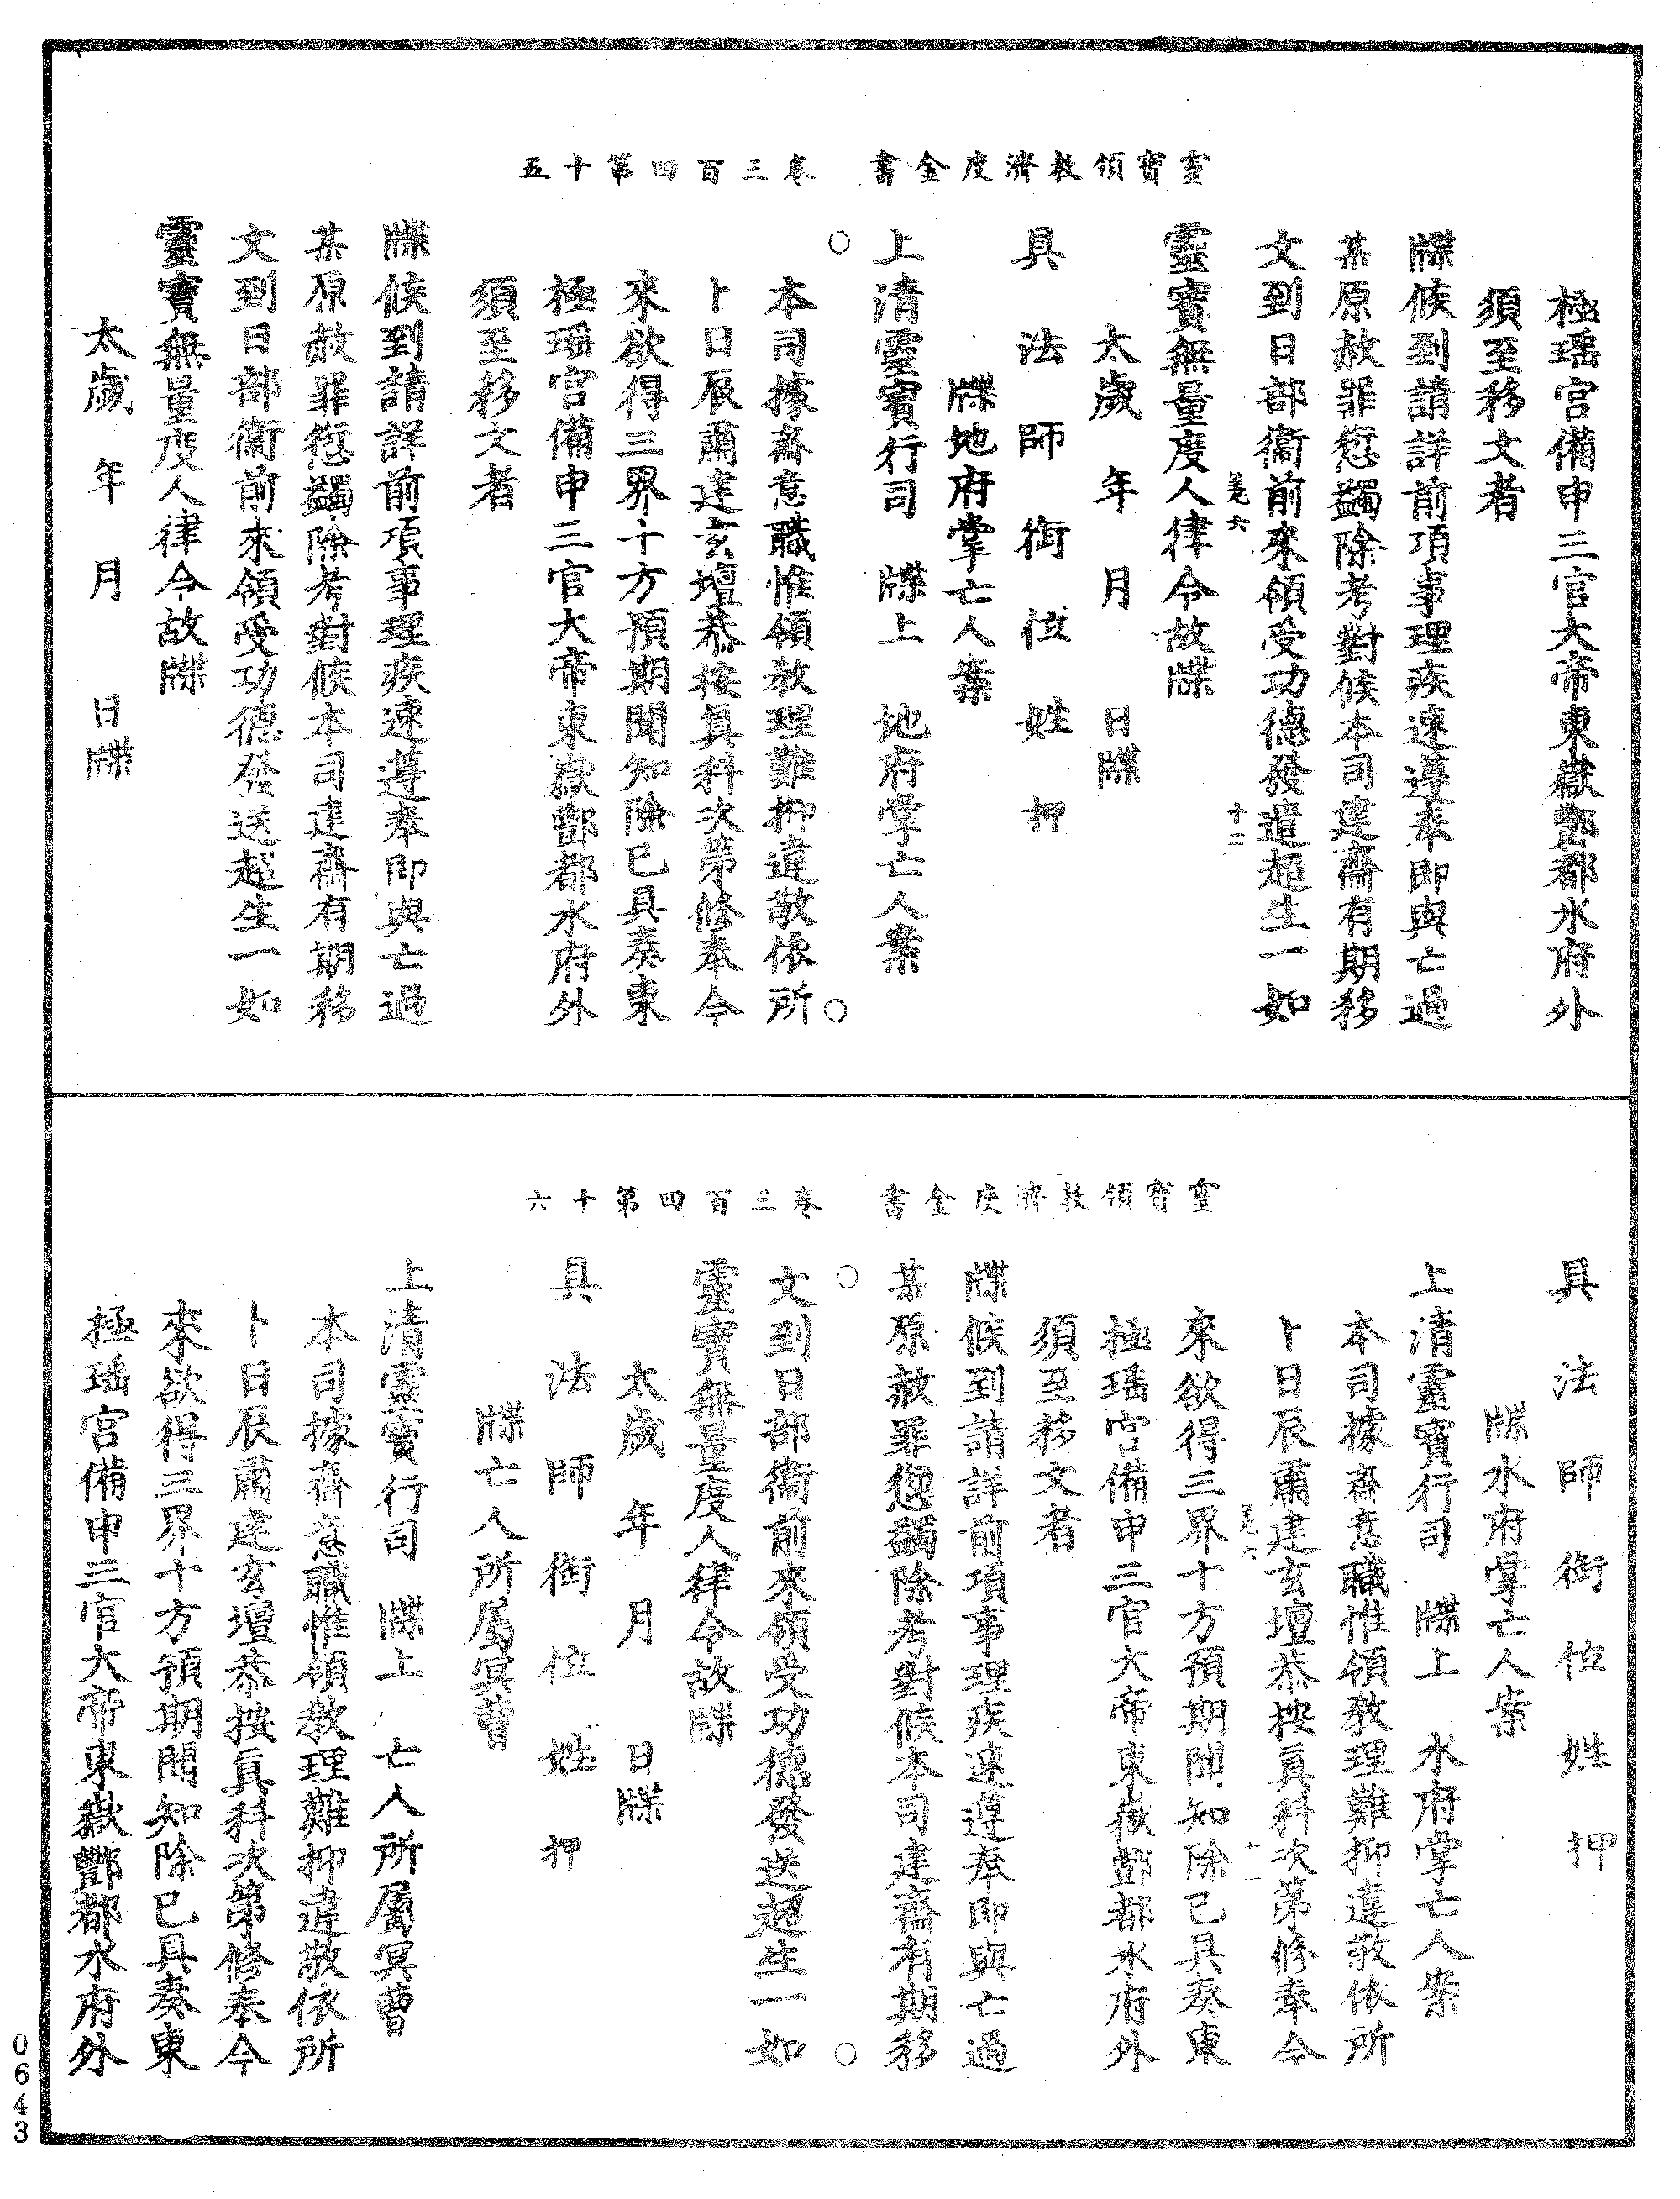 靈寶領教濟度金書 卷三百四第十五
極瑶宫備申三官大帝東嶽酆都水府外
須至移文者
牒候到請詳前項事理疾速遵奉即與亡過
某原赦罪愆蠲除考對候本司建齋有期移
文到日部衞前來領受功德發遣超生一如
㐬六 十二
靈寶無量度人律令故牒
太歲 年 月 日牒
具 法 師 銜 位 姓 押
牒地府掌亡人案
上清靈寶行司 牒上 地府掌亡人案
本司據齋意職惟領教理難抑違敬依所
卜日辰肅建玄壇恭按眞科次第修奉今
來欲得三界十方預期聞知除已具奏東
極瑶宫備申三官大帝東嶽酆都水府外
須至移文者
牒候到請詳前項事理疾速遵奉即與亡過
某原赦罪愆蠲除考對候本司建齋有期移
文到日部衞前來領受功德發送超生一如
靈寶無量度人律令故牒
太歲 年 月 日牒
靈寶領教濟度金書 卷三百四第十六
具 法 師 銜 位 姓 押
牒水府掌亡人案
上清靈寶行司 牒上 水府掌亡人案
本司據齋意職惟領教理難抑違敬依所
卜日辰肅建玄壇恭按眞科次第修奉今
來欲得三界十方預期聞知除已具奏東
極瑶宫備申三官大帝東嶽酆都水府外
須至移文者
牒候到請詳前項事理疾速遵奉即與亡過
某原赦罪愆蠲除考對候本司建齋有期移
文到日部衞前來領受功德發送超生一如
靈寶無量度人律令故牒
太歲 年 月 日牒
具 法 師 銜 位 姓 押
牒亡人所屬冥曹
上清靈寶行司 牒上 亡人所屬冥曹
本司據齋意職惟領教理難抑違敬依所
卜日辰肅建玄壇恭按眞科次第修奉今
來欲得三界十方預期聞知除已具奏東
極瑶宫備申三官大帝東嶽酆都水府外
0643